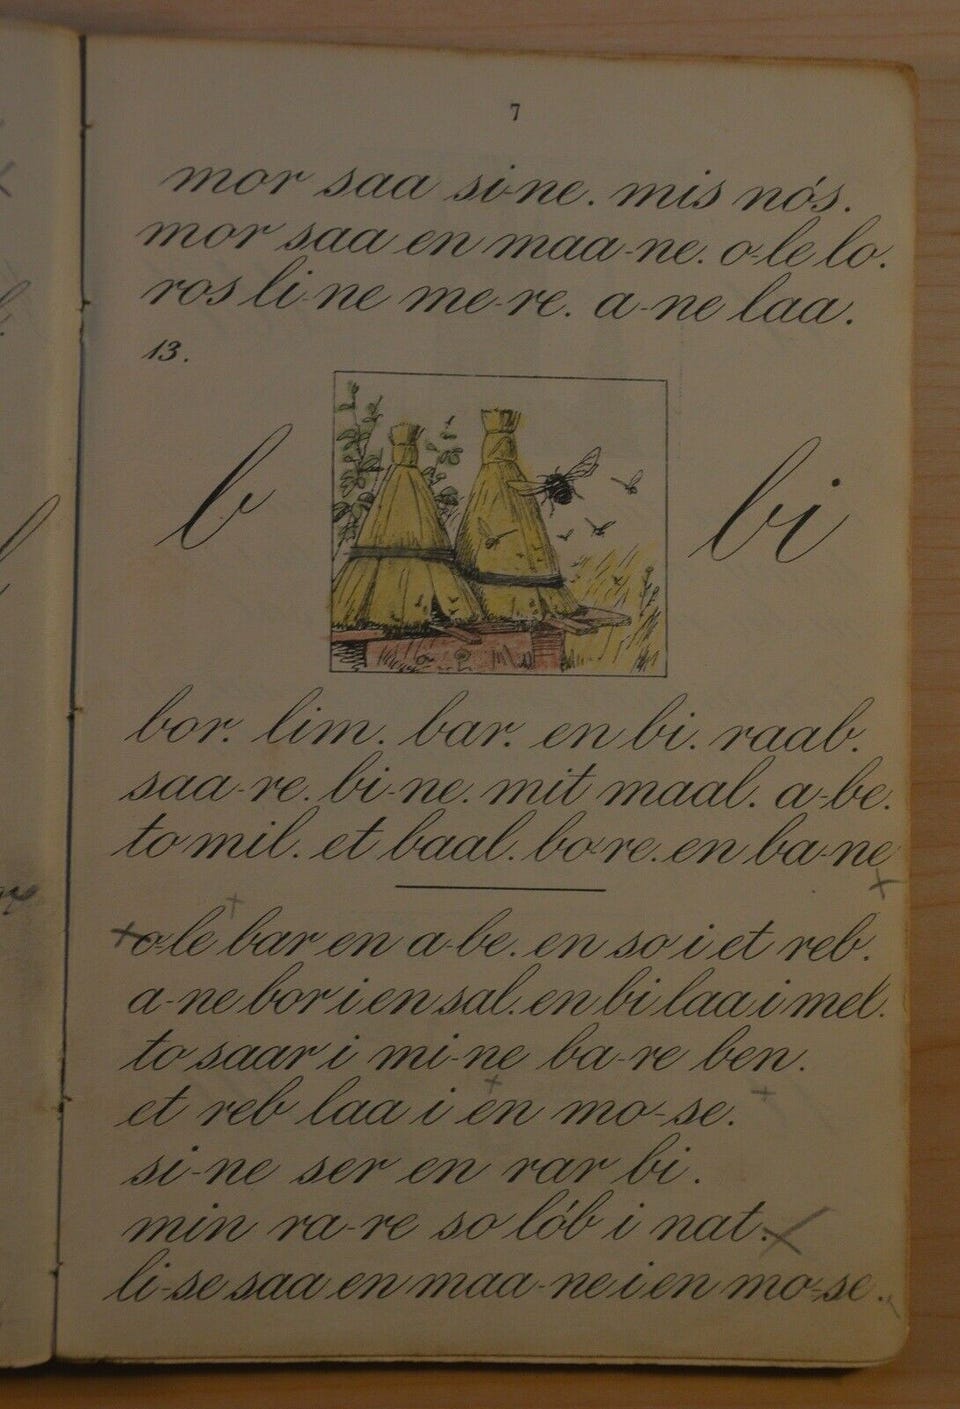 7
mor saa si-ne. mis nós.
mor saa en maa-ne. o-le lo.
ros li-ne me-re. a-ne laa.
13.
b bi
bor. lim. bar. en bi. raab.
saa-re. bi-ne. mit maal. a-be.
to mil. et baal. bo-re. en ba-ne
o-le bar en a-be. en so i et reb.
a-ne bor i en sal. en bi laa i mel.
to saar i mi-ne ba-re ben.
et reb laa i en mo-se.
si-ne ser en rar bi.
min ra-re so lób i nat.
li-se saa en maa-ne i en mo-se.